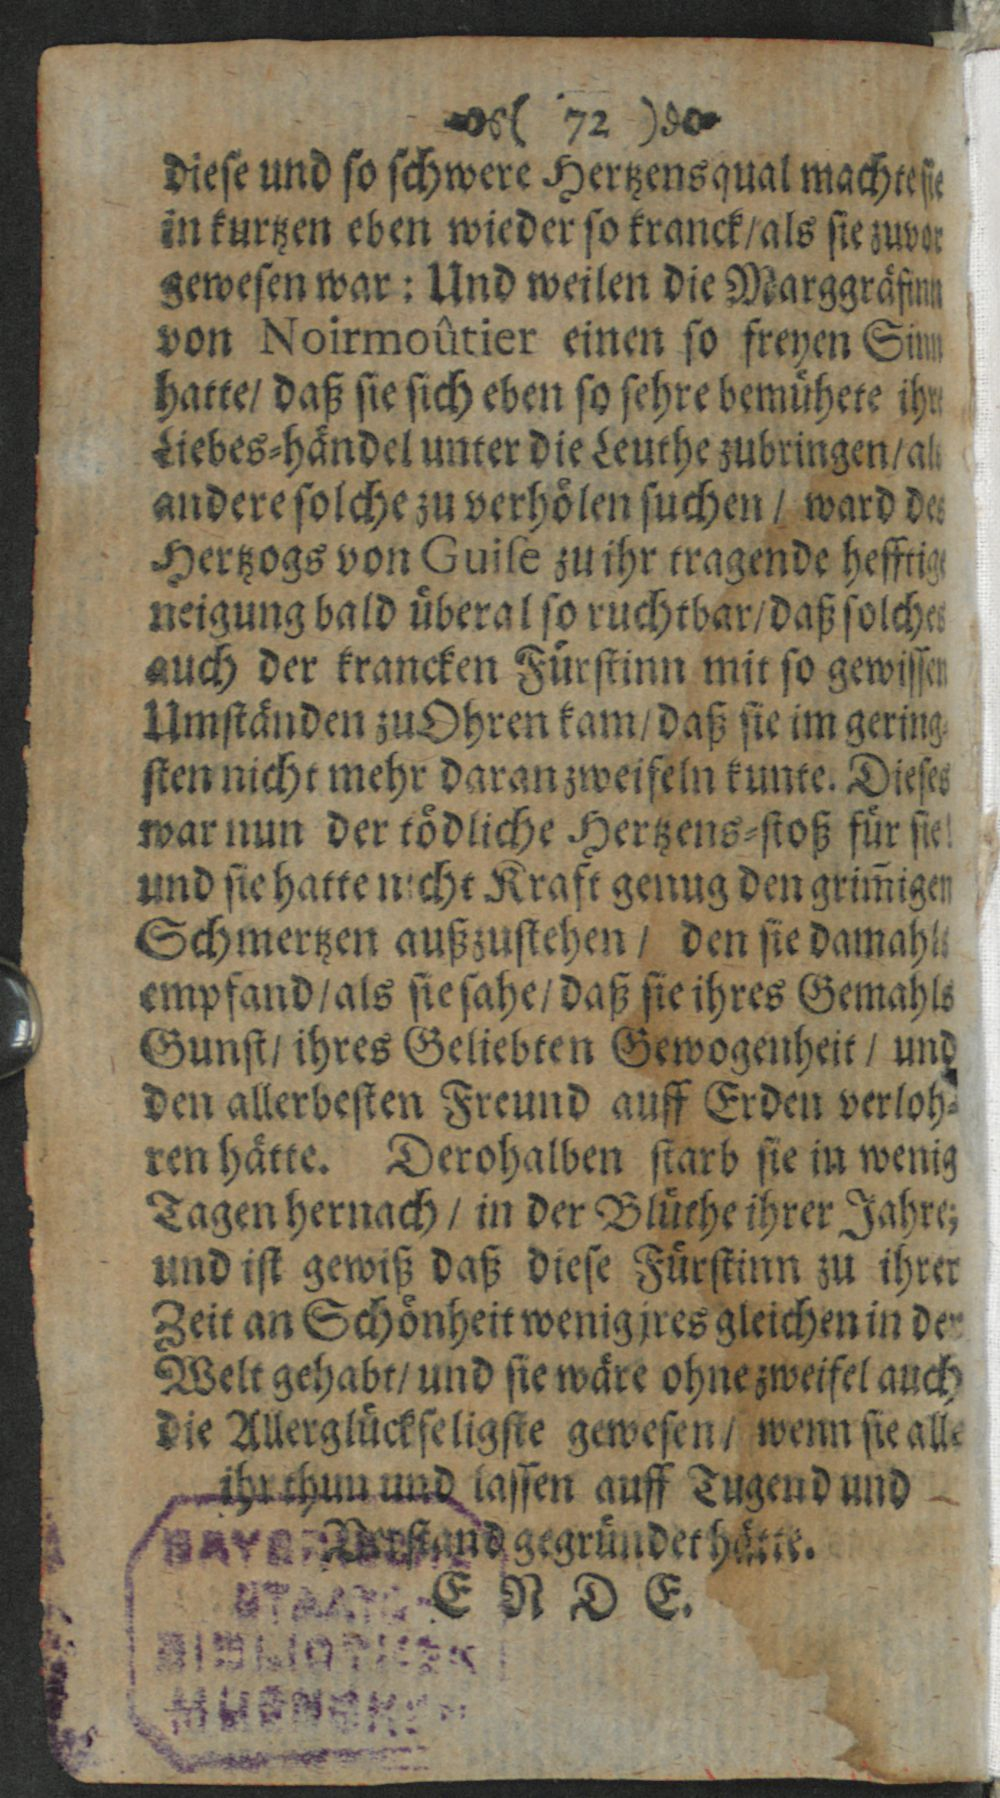 ( 72 )
diese und so schwere Hertzensqual machte sie
in kurtzen eben wieder so kranck/als sie zuvor
gewesen war: Und weilen die Marggräfinn
von Noirmoûtier einen so freyen Sinn
hatte/ daß sie sich eben so sehre bemühete ihre
Liebes-händel unter die Leuthe zubringen/als
andere solche zu verhölen suchen/ ward des
Hertzogs von Guise zu ihr tragende hefftige
neigung bald überal so ruchtbar/daß solches
auch der krancken Fürstinn mit so gewissen
Umständen zu Ohren kam/daß sie im gering-
sten nicht mehr daran zweifeln kunte. Dieses
war nun der tödliche Hertzens-stoß für sie!
und sie hatte nicht Kraft genug den grim̃igen
Schmertzen außzustehen/ den sie damahls
empfand/als sie sahe/daß sie ihres Gemahls
Gunst/ ihres Geliebten Gewogenheit/ und
den allerbesten Freund auff Erden verloh-
ren hätte. Derohalben starb sie in wenig
Tagen hernach/ in der Blüthe ihrer Jahre;
und ist gewiß daß diese Fürstinn zu ihrer
Zeit an Schönheit wenig jres gleichen in der
Welt gehabt/und sie wäre ohne zweifel auch
die Allerglückseligste gewesen/ wenn sie alle
ihr thun und lassen auff Tugend und
Verstand gegründet hätte.
ENDE.
BAYERISCHE
STAATS-
BIBLIOTHEK
MUENCHEN